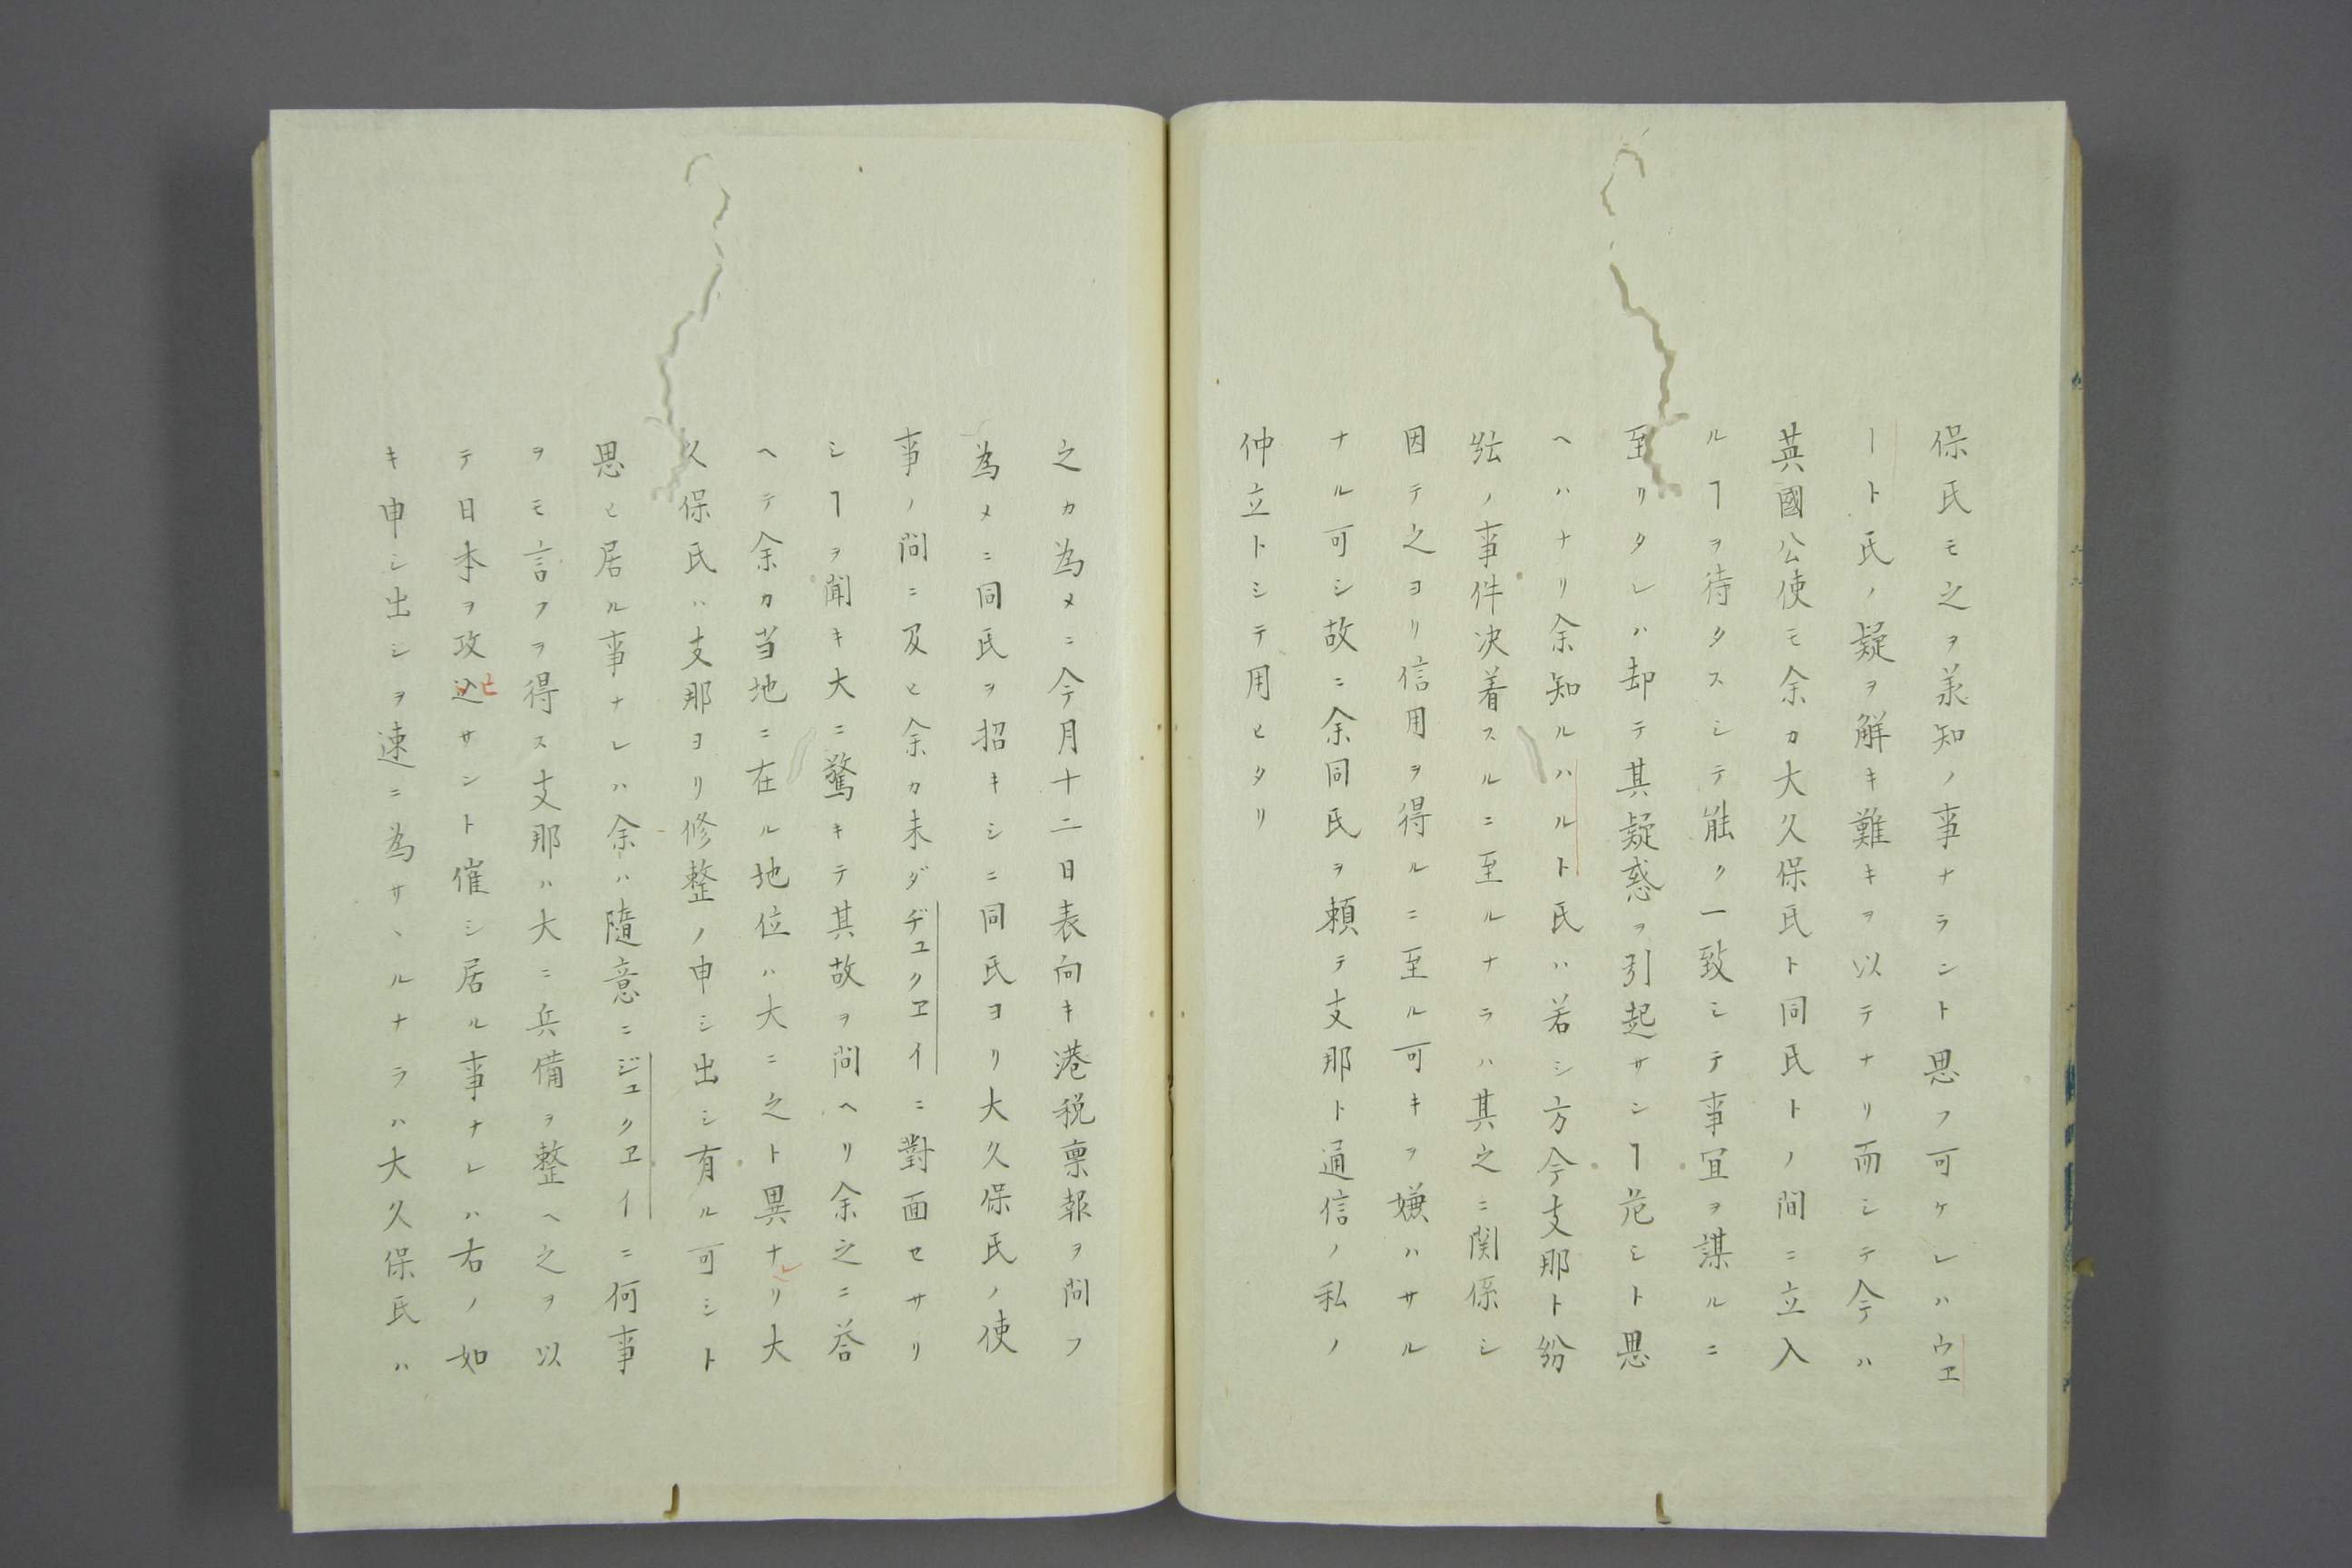 保氏モ之ヲ承知ノ事ナラント思フ可ケレハウエ
ート氏ノ疑ヲ解キ難キヲ以テナリ而シテ今ハ
英國公使モ余カ大久保氏ト同氏トノ間ニ立入
ルヿヲ待タスシテ能ク一致シテ事宜ヲ謀ルニ
至リタレハ却テ其疑惑ヲ引起サンヿ危シト思
ヘハナリ余知ルハハルト氏ハ若シ方今支那ト紛
紜ノ事件决着スルニ至ルナラハ其之ニ関係シ
因テ之ヨリ信用ヲ得ルニ至ル可キヲ嫌ハサル
ナル可シ故ニ余同氏ヲ頼テ支那ト通信ノ私ノ
仲立トシテ用ヒタリ
之カ為メニ今月十二日表向キ港税稟報ヲ問フ
為メニ同氏ヲ招キシニ同氏ヨリ大久保氏ノ使
事ノ問ニ及ヒ余カ未ダヂュクヱイニ對面セサリ
シヿヲ聞キ大ニ驚キテ其故ヲ問ヘリ余之ニ荅
ヘテ余カ当地ニ在ル地位ハ大ニ之ト異ナレリ大
久保氏ハ支那ヨリ修整ノ申シ出シ有ル可シト
思ヒ居ル事ナレハ余ハ隨意ニジュクヱイニ何事
ヲモ言フヲ得ス支那ハ大ニ兵備ヲ整ヘ之ヲ以
テ日本ヲ攻込ヒサント催シ居ル事ナレハ右ノ如
キ申シ出シヲ速ニ為サヽルナラハ大久保氏ハ